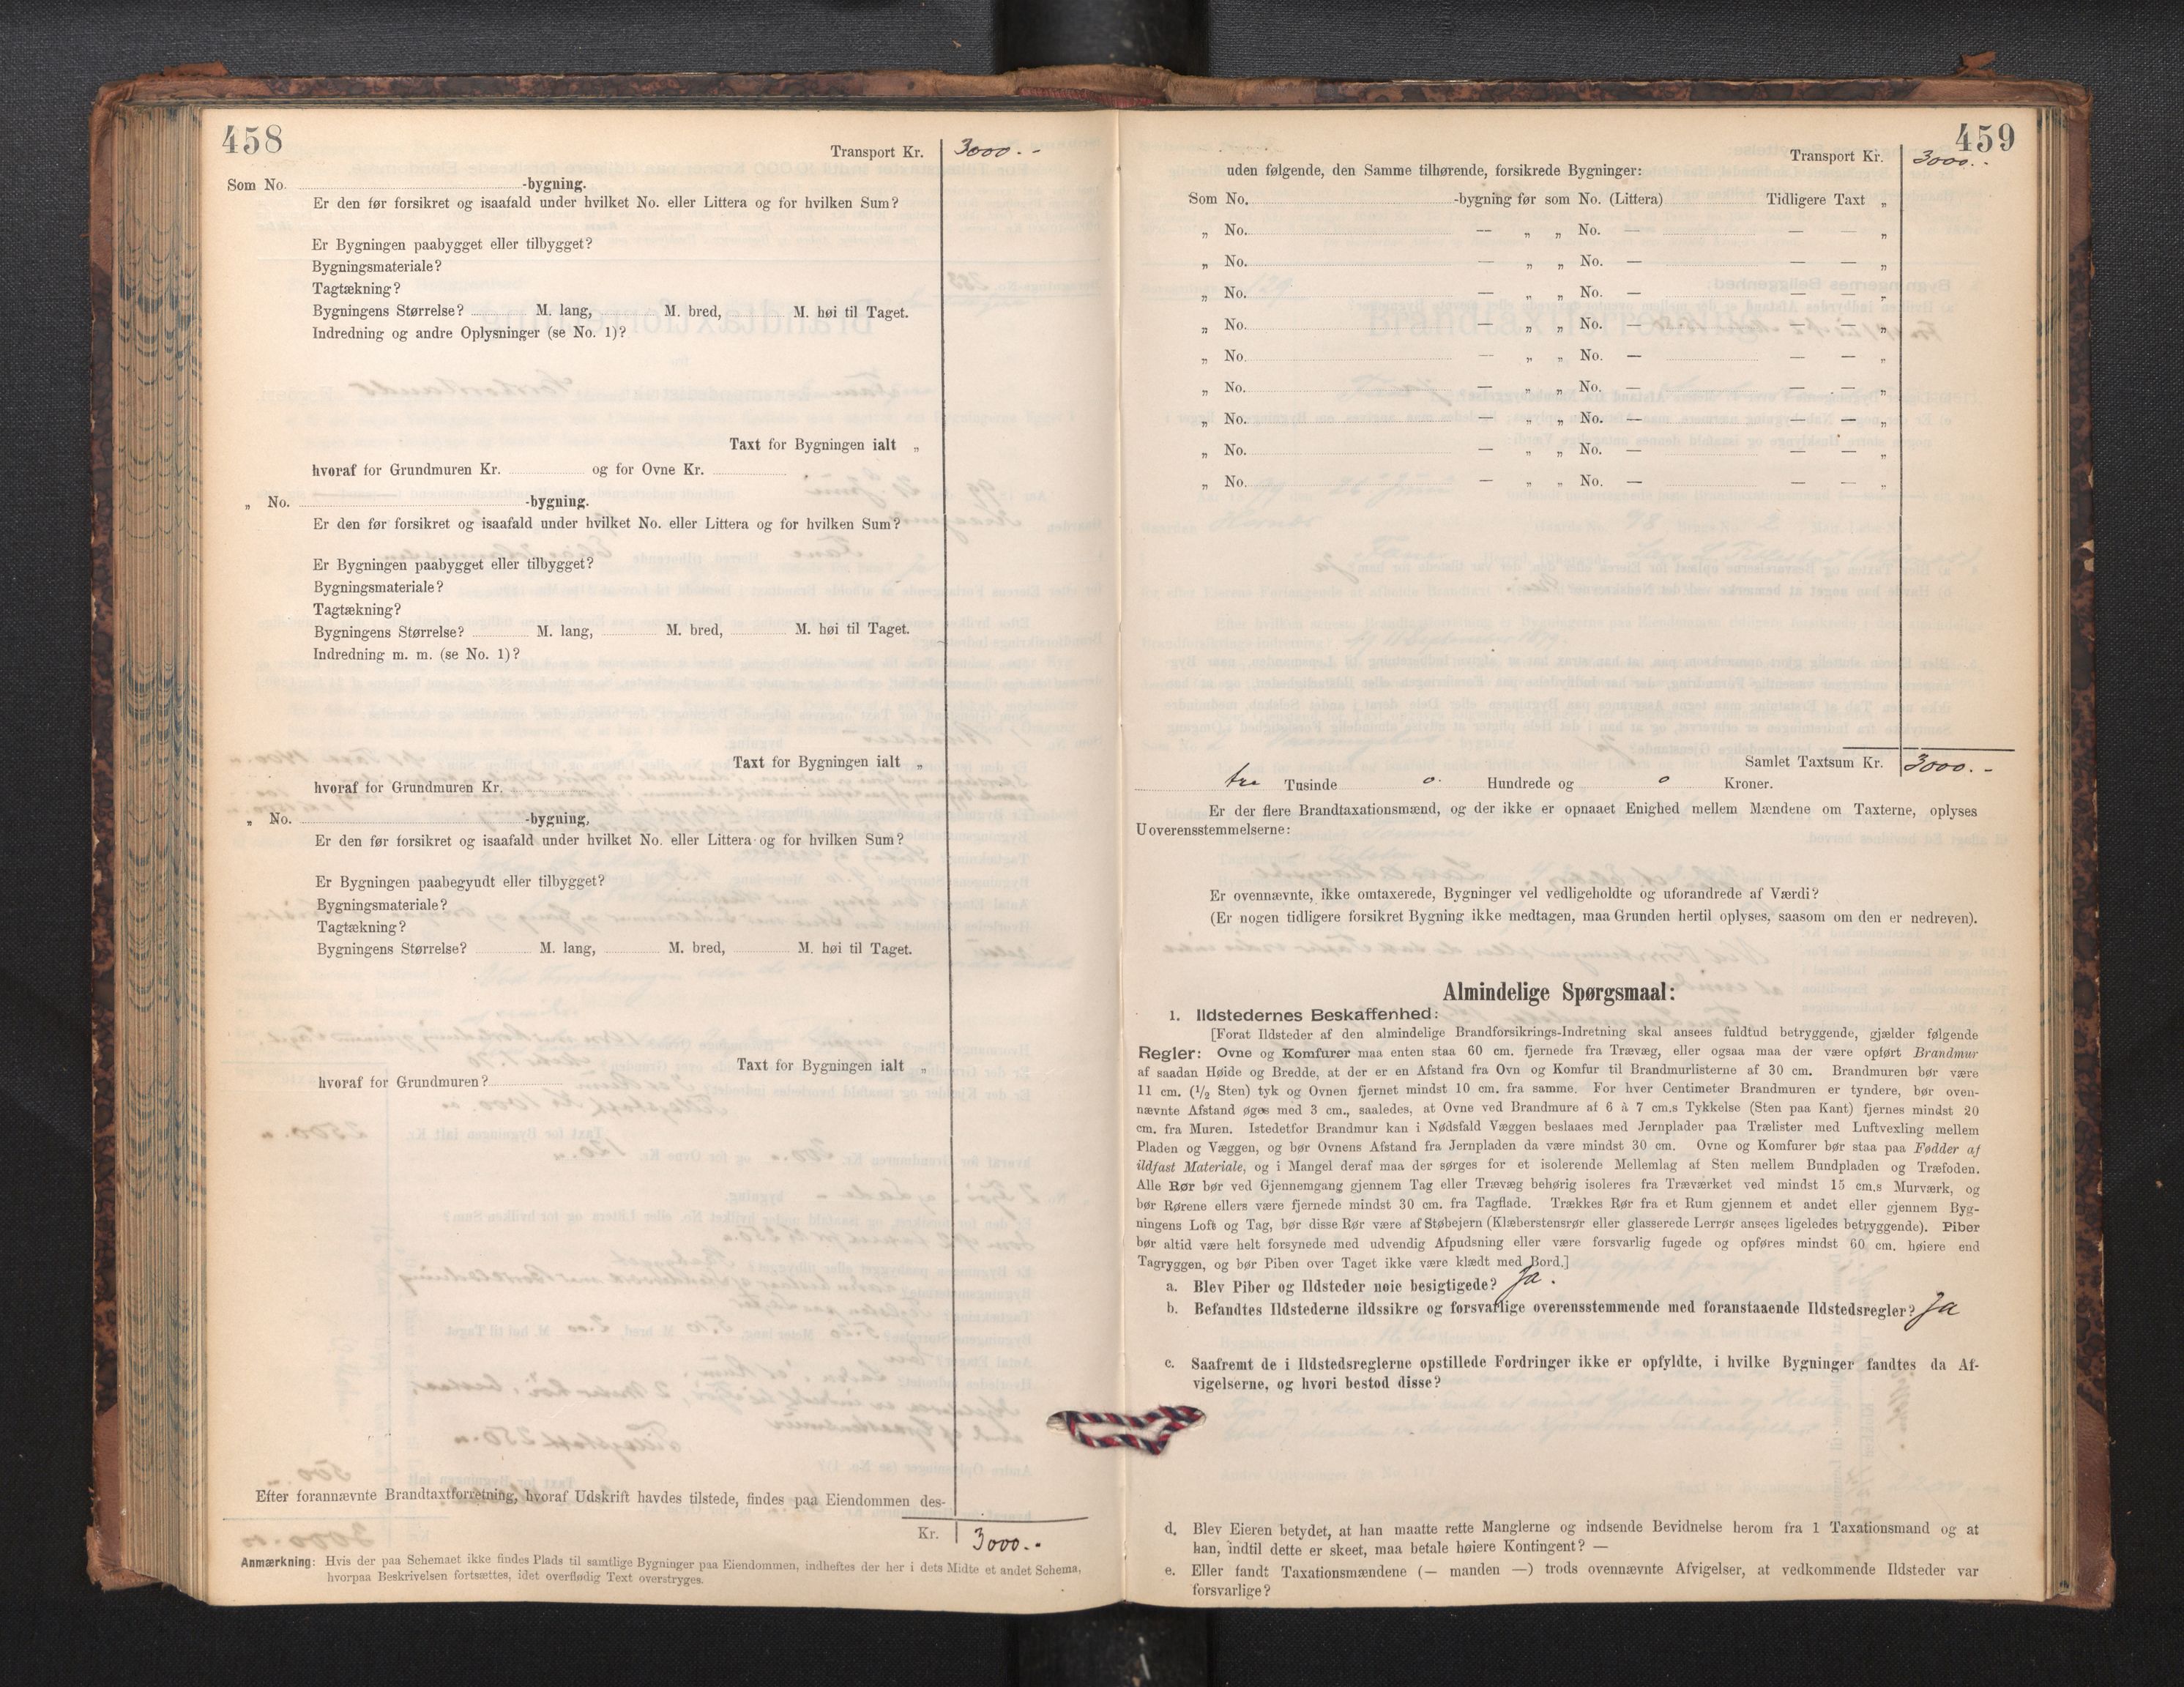 458
Transport Kr. 3000.-
Som No. -bygning.
Er den før forsikret og isaafald under hvilket No. eller Littera og for hvilken Sum?
Er Bygningen paabygget eller tilbygget?
Bygningsmateriale?
Tagtækning?
Bygningens Størrelse? M. lang, M. bred, M. høi til Taget.
Indredning og andre Oplysninger (se No. 1)?
Taxt for Bygningen ialt „
hvoraf for Grundmuren Kr. og for Ovne Kr.
„ No. -bygning.
Er den før forsikret og isaafald under hvilket No. eller Littera og for hvilken Sum?
Er Bygningen paabygget eller tilbygget?
Bygningsmateriale?
Tagtækning?
Bygningens Størrelse? M. lang, M. bred, M. høi til Taget.
Indredning m. m. (se No. 1)?
Taxt for Bygningen ialt „
hvoraf for Grundmuren Kr.
„ No. -bygning,
Er den før forsikret og isaafald under hvilket No. eller Littera og for hvilken Sum?
Er Bygningen paabegyudt eller tilbygget?
Bygningsmateriale?
Tagtækning?
Bygningens Størrelse? M. lang, M. bred, M. høi til Taget.
Taxt for Bygningen ialt „
hvoraf for Grundmuren?
Efter forannævnte Brandtaxtforretning, hvoraf Udskrift havdes tilstede, findes paa Eiendommen des-
Kr. 3000.-
Anmærkning: Hvis der paa Schemaet ikke findes Plads til samtlige Bygninger paa Eiendommen, indheftes der her i dets Midte et andet Schema,
hvorpaa Beskrivelsen fortsættes, idet overflødig Text overstryges.
459
Transport Kr. 3000.-
uden følgende, den Samme tilhørende, forsikrede Bygninger:
Som No. -bygning før som No. (Littera) Tidligere Taxt „
„ No. — „ „ No. — — — „
„ No. — „ „ No. — — — „
„ No. — „ „ No. — — — „
„ No. — „ „ No. — — — „
„ No. — „ „ No. — — — „
„ No. — „ „ No. — — — „
„ No. — „ „ No. — — — „
„ No. — „ „ No. — — — „
„ No. — „ „ No. — — — „
Samlet Taxtsum Kr. 3000.-
tre Tusinde o. Hundrede og o Kroner.
Er der flere Brandtaxationsmænd, og der ikke er opnaaet Enighed mellem Mændene om Taxterne, oplyses
Uoverensstemmelserne:
Er ovennævnte, ikke omtaxerede, Bygninger vel vedligeholdte og uforandrede af Værdi?
(Er nogen tidligere forsikret Bygning ikke medtagen, maa Grunden hertil oplyses, saasom om den er nedreven).
Almindelige Spørgsmaal:
1. Ildstedernes Beskaffenhed:
[Forat Ildsteder af den almindelige Brandforsikrings-Indretning skal ansees fuldtud betryggende, gjælder følgende
Regler: Ovne og Komfurer maa enten staa 60 cm. fjernede fra Trævæg, eller ogsaa maa der være opført Brandmur
af saadan Høide og Bredde, at der er en Afstand fra Ovn og Komfur til Brandmurlisterne af 30 cm. Brandmuren bør være
11 cm. (1/2 Sten) tyk og Ovnen fjernet mindst 10 cm. fra samme. For hver Centimeter Brandmuren er tyndere, bør oven-
nævnte Afstand øges med 3 cm., saaledes, at Ovne ved Brandmure af 6 à 7 cm.s Tykkelse (Sten paa Kant) fjernes mindst 20
cm. fra Muren. Istedetfor Brandmur kan i Nødsfald Væggen beslaaes med Jernplader paa Trælister med Luftvexling mellem
Pladen og Væggen, og bør Ovnens Afstand fra Jernpladen da være mindst 30 cm. Ovne og Komfurer bør staa paa Fødder af
ildfast Materiale, og i Mangel deraf maa der sørges for et isolerende Mellemlag af Sten mellem Bundpladen og Træfoden.
Alle Rør bør ved Gjennemgang gjennem Tag eller Trævæg behørig isoleres fra Træværket ved mindst 15 cm.s Murværk, og
bør Rørene ellers være fjernede mindst 30 cm. fra Tagflade. Trækkes Rør fra et Rum gjennem et andet eller gjennem Byg-
ningens Loft og Tag, bør disse Rør være af Støbejern (Klæberstensrør eller glasserede Lerrør ansees ligeledes betryggende). Piber
bør altid være helt forsynede med udvendig Afpudsning eller være forsvarlig fugede og opføres mindst 60 cm. høiere end
Tagryggen, og bør Piben over Taget ikke være klædt med Bord.]
a. Blev Piber og Ildsteder nøie besigtigede? Ja.
b. Befandtes Ildstederne ildssikre og forsvarlige overensstemmende med foranstaaende Ildstedsregler? Ja
c. Saafremt de i Ildstedsreglerne opstillede Fordringer ikke er opfyldte, i hvilke Bygninger fandtes da Af-
vigelserne, og hvori bestod disse?
d. Blev Eieren betydet, at han maatte rette Manglerne og indsende Bevidnelse herom fra 1 Taxationsmand og at
han, indtil dette er skeet, maa betale høiere Kontingent? —
e. Eller fandt Taxationsmændene (— manden —) trods ovennævnte Afvigelser, at vedkommende Ildsteder var
forsvarlige?